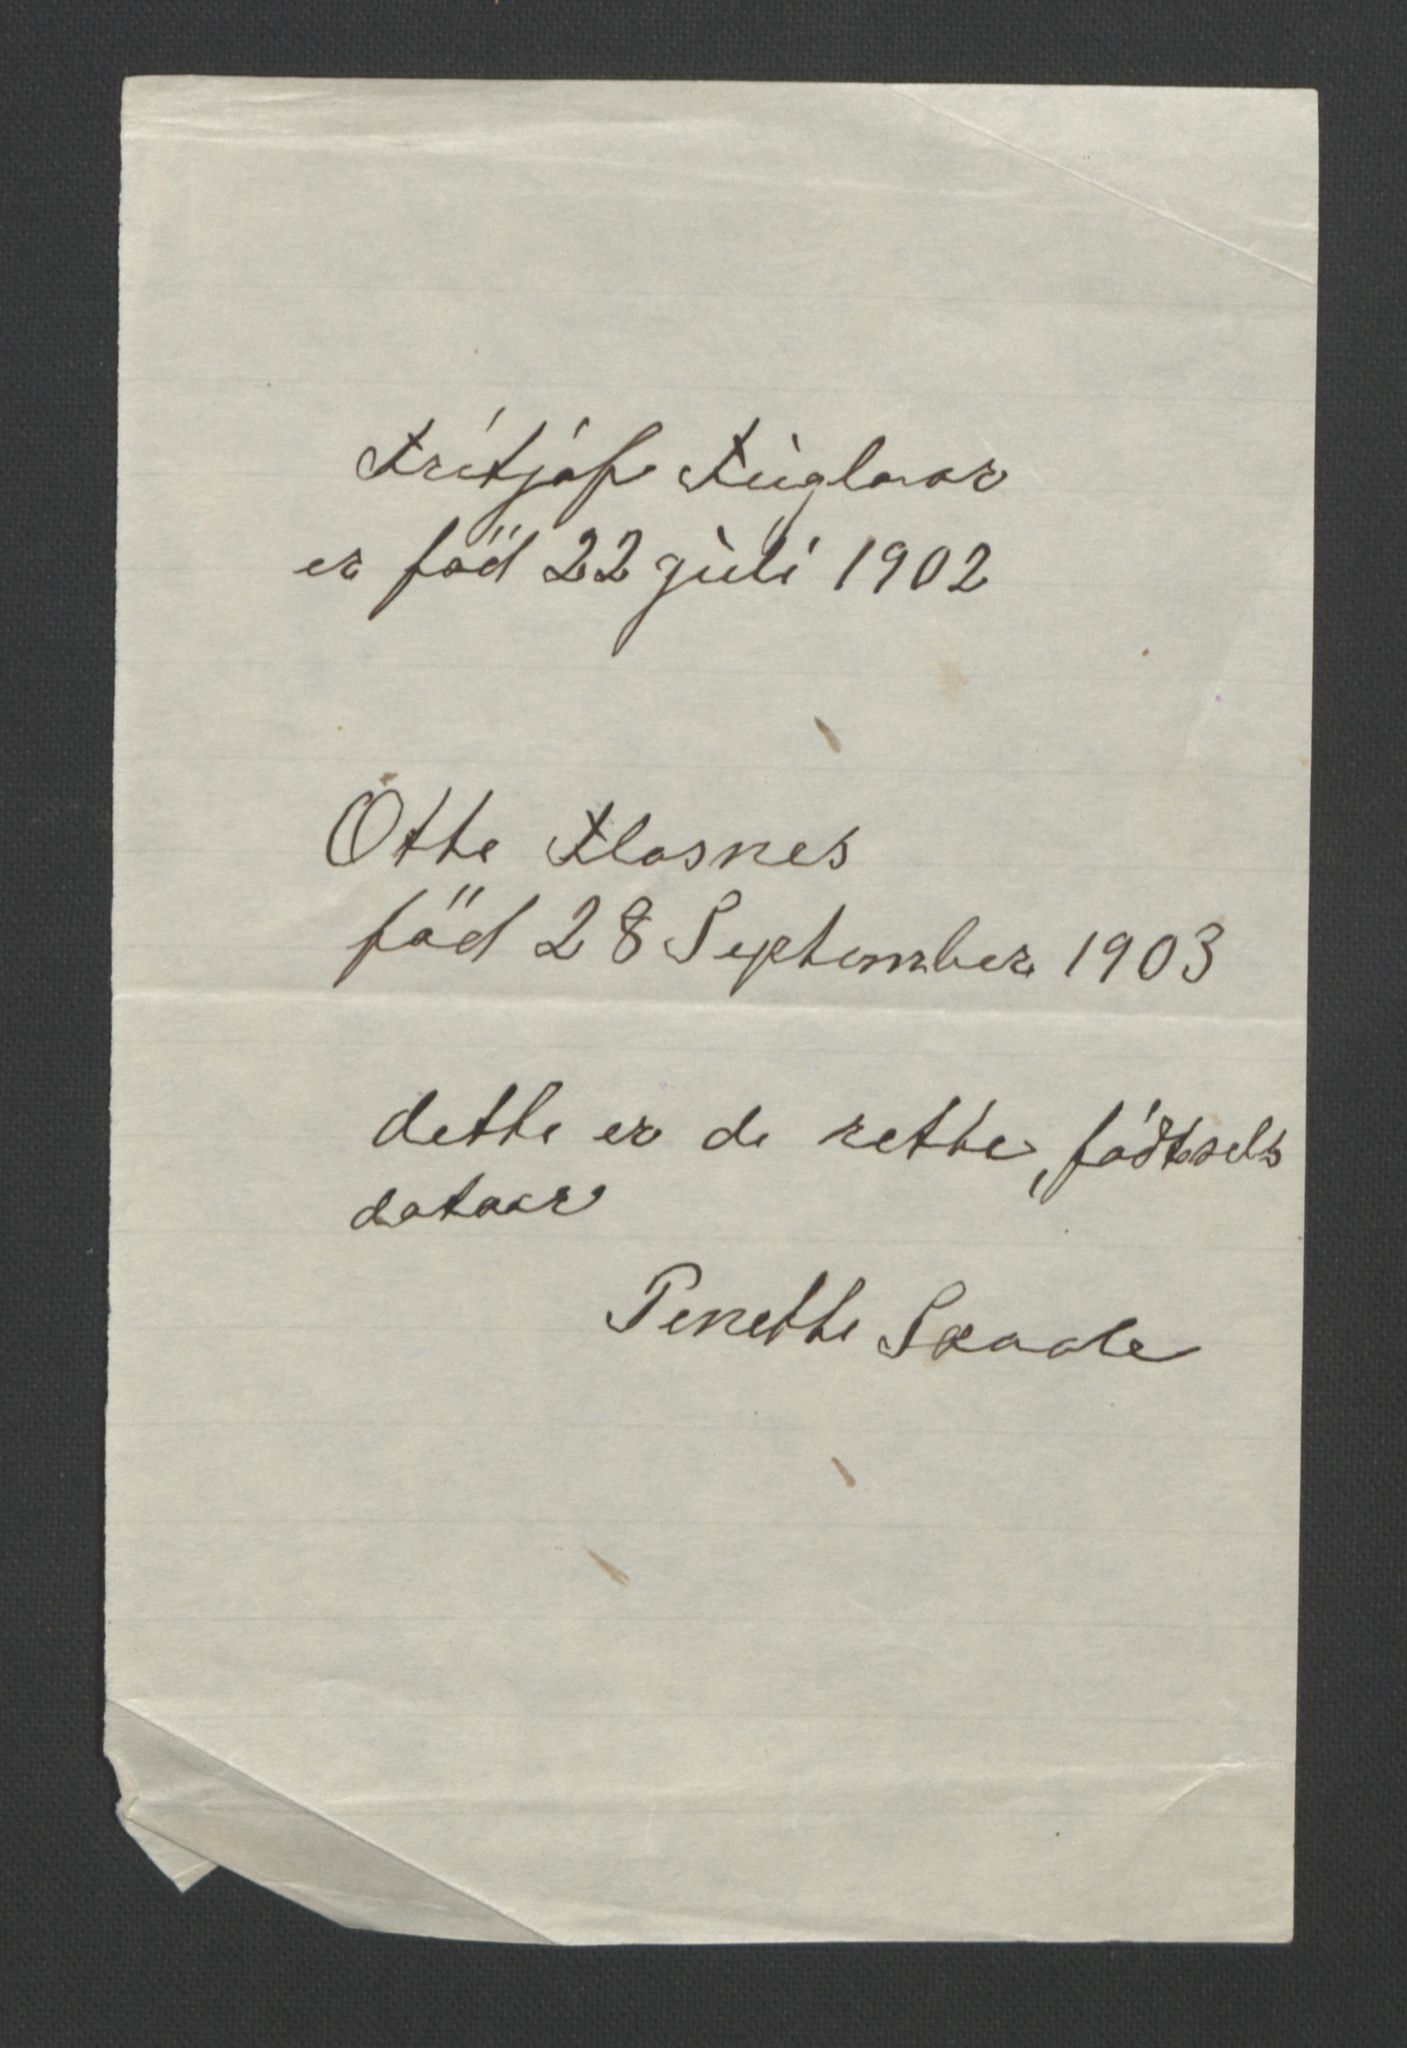 Fritjof Fuglaar
er föd 22 juli 1902
Otte Flasnes
föd 28 September 1903
dette er de rette födtsels
dataar
Penette Saude